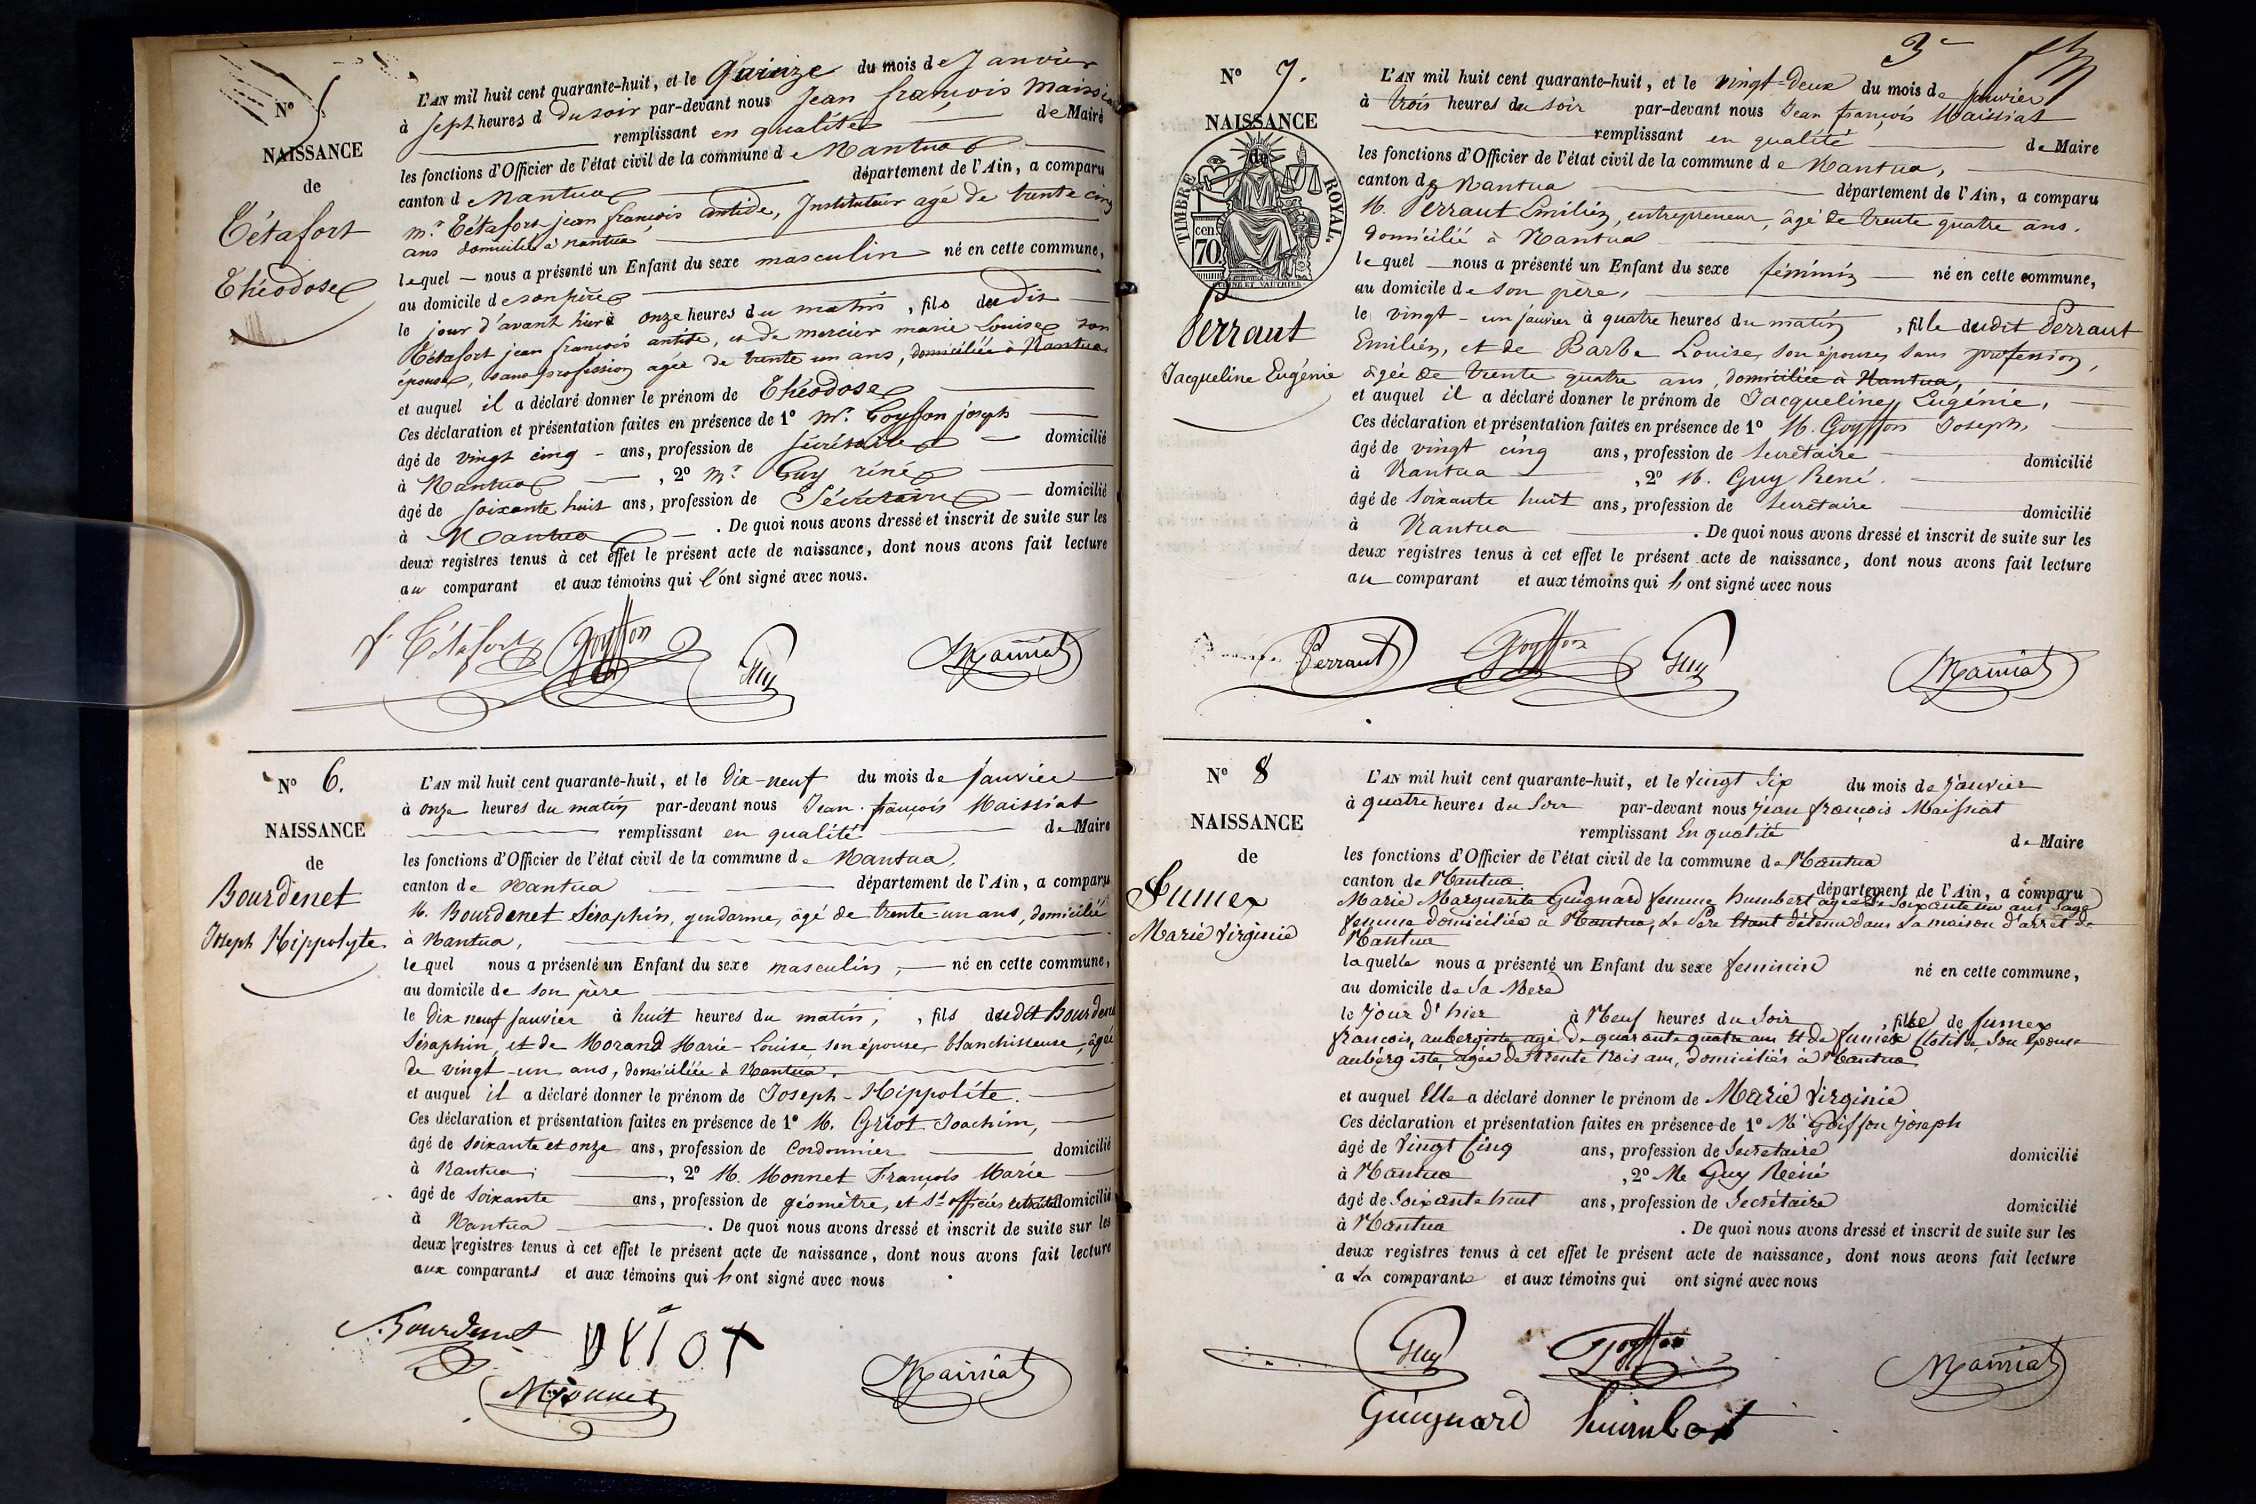 N° 5
NAISSANCE
de
Tétafort
Théodose
L'AN mil huit cent quarante-huit, et le Quinze du mois de Janvier
à sept heures d du soir par-devant nous Jean françois Maissiat
remplissant en qualité de Maire
les fonctions d'Officier de l'état civil de la commune d e Nantua
canton d Nantua département de l'Ain, a comparu
mr. Tétafort jean françois antide, Instituteur agé de trente cinq
ans domicilié a nantua
lequel nous a présenté un Enfant du sexe masculin né en cette commune,
au domicile de son père
le jour d'avant hier à onze heures du matin, fils dudit
Tétafort jean françois antide, et de mercier marie Louise son
épouse, sans profession agée de trente un ans, domiciliée à Nantua
et auquel il a déclaré donner le prénom de Théodose
Ces déclaration et présentation faites en présence de 1° Mr. Goyffon joseph
âgé de vingt cinq ans, profession de secrétaire domicilié
à Nantua, 2° Mr Guy réné
âgé de soixante huit ans, profession de Sécrétaire domicilié
à Nantua. De quoi nous avons dressé et inscrit de suite sur les
deux registres tenus à cet effet le présent acte de naissance, dont nous avons fait lecture
au comparant et aux témoins qui l'ont signé avec nous.
f. Tétafort Goyffon Guy Maissiat
N° 6.
NAISSANCE
de
Bourdenet
Joseph Hippolyte
L'AN mil huit cent quarante-huit, et le Dix-neuf du mois de Janvier
à onze heures du matin par-devant nous Jean-françois Maissiat
remplissant en qualité de Maire
les fonctions d'Officier de l'état civil de la commune de Nantua,
canton de Nantua département de l'Ain, a comparu
M. Bourdenet Séraphin, gendarme, âgé de trente-un ans, domicilié
à Nantua,
lequel nous a présenté un Enfant du sexe masculin, né en cette commune,
au domicile de son père
le Dix neuf Janvier à huit heures du matin, fils dudit Bourdenet
Séraphin, et de Morand Marie-Louise, son épouse, blanchisseuse, âgée
de vingt-un ans, domiciliée à Nantua.
et auquel il a déclaré donner le prénom de Joseph-Hippolite.
Ces déclaration et présentation faites en présence de 1° M. Griot Joachim,
âgé de soixante et onze ans, profession de Cordonnier domicilié
à Nantua, 2° M. Monnet François Marie
âgé de soixante ans, profession de géomètre, et s.t officier retraité domicilié
à Nantua. De quoi nous avons dressé et inscrit de suite sur les
deux registres tenus à cet effet le présent acte de naissance, dont nous avons fait lecture
aux comparants et aux témoins qui l ont signé avec nous
S. Bourdenet Griot Maissiat
Monnet
3e
N° 7.
NAISSANCE
de
TIMBRE ROYAL.
70 cen
Perraut
Jacqueline Eugénie
L'AN mil huit cent quarante-huit, et le vingt-deux du mois de Janvier
à trois heures du soir par-devant nous Jean françois Maissiat
remplissant en qualité de Maire
les fonctions d'Officier de l'état civil de la commune d e Nantua,
canton de Nantua département de l'Ain, a comparu
M. Perraut Emilien, entrepreneur, âgé de trente quatre ans,
domicilié à Nantua
lequel nous a présenté un Enfant du sexe féminin né en cette commune,
au domicile de son père,
le vingt-un janvier à quatre heures du matin, fille dudit Perraut
Emilien, et de Barbe Louise, son épouse, sans profession,
âgée de trente quatre ans, domiciliée à Nantua,
et auquel il a déclaré donner le prénom de Jacqueline Eugénie,
Ces déclaration et présentation faites en présence de 1° M. Goyffon Joseph,
âgé de vingt cinq ans, profession de Secrétaire domicilié
à Nantua, 2° M. Guy René.
âgé de Soixante huit ans, profession de Secrétaire domicilié
à Nantua. De quoi nous avons dressé et inscrit de suite sur les
deux registres tenus à cet effet le présent acte de naissance, dont nous avons fait lecture
au comparant et aux témoins qui l ont signé avec nous
Perraut Goyffon Guy Maissiat
N° 8
NAISSANCE
de
Jumex
Marie Virginie
L'AN mil huit cent quarante-huit, et le vingt Six du mois de Janvier
à quatre heures du Soir par-devant nous Jean françois Maissiat
remplissant En qualité de Maire
les fonctions d'Officier de l'état civil de la commune de Nantua
canton de Nantua département de l'Ain, a comparu
Marie Marguerite Guignard femme humbert agée de soixante un ans Sage
femme domiciliée a Nantua, Le Père étant détenu dans La maison d'arrêt de
Nantua
laquelle nous a présenté un Enfant du sexe feminin né en cette commune,
au domicile de Sa Mere
le Jour d'hier à Neuf heures du Soir, fille de Jumex
françois, aubergiste agé de quarante quatre ans et de Jumex Clotilde, Son Epouse
aubergiste, agée de trente trois ans, domiciliés à Nantua
et auquel Elle a déclaré donner le prénom de Marie Virginie
Ces déclaration et présentation faites en présence de 1° Mr Goiffon Joseph
âgé de Vingt Cinq ans, profession de Secretaire domicilié
à Nantua, 2° Mr Guy Réné
âgé de Soixante huit ans, profession de Secrétaire domicilié
à Nantua. De quoi nous avons dressé et inscrit de suite sur les
deux registres tenus à cet effet le présent acte de naissance, dont nous avons fait lecture
a La comparante et aux témoins qui ont signé avec nous
Guy Goyffon Maissiat
Guignard humbert